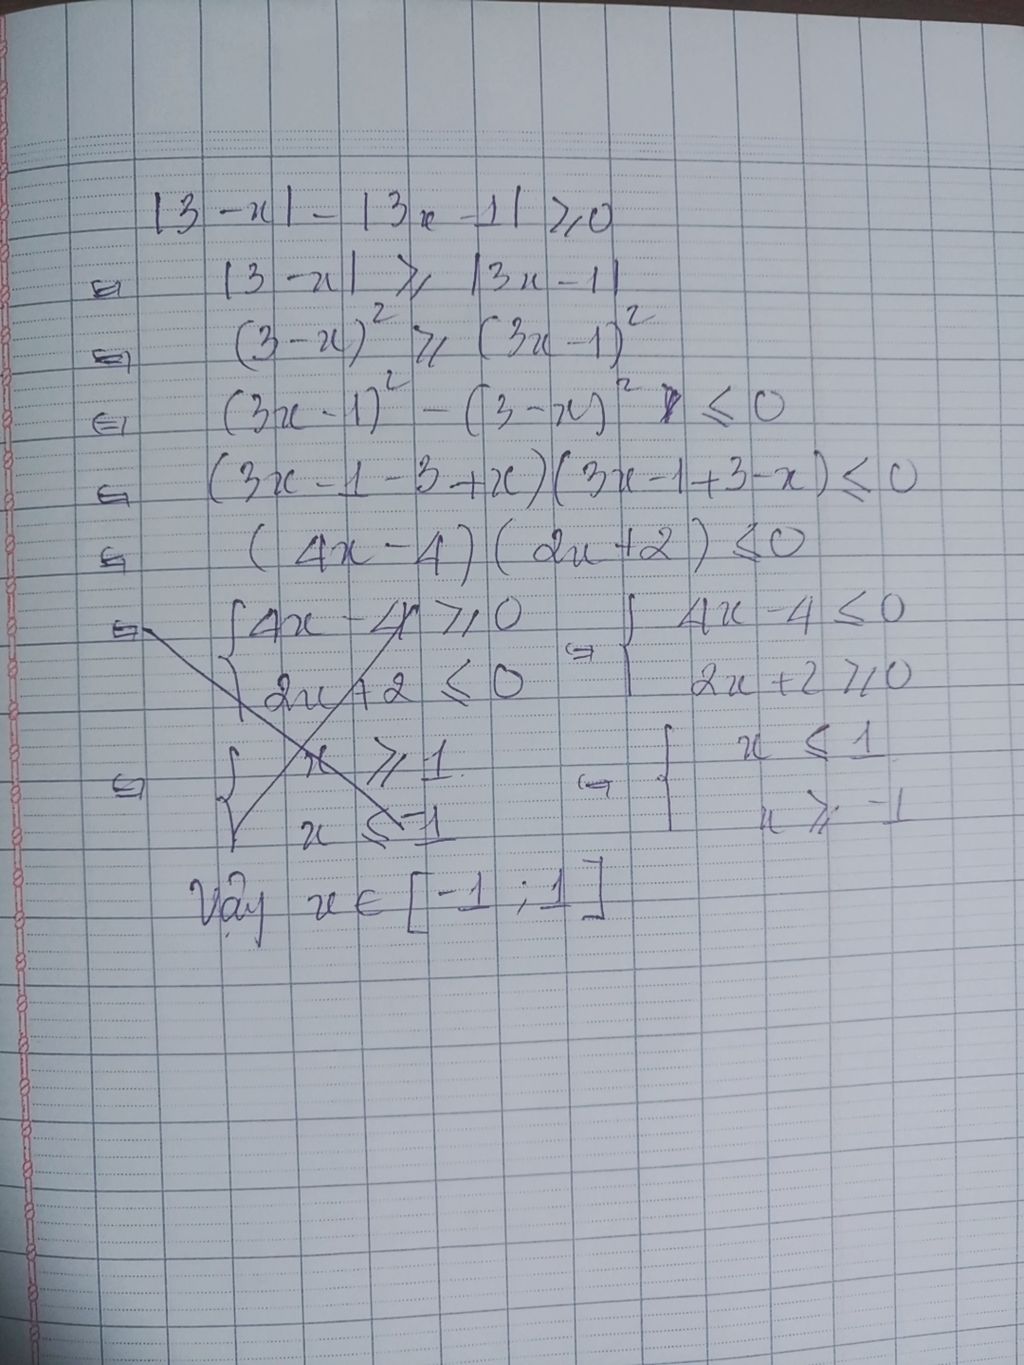 |3 - x| - |3x - 1| ≥ 0
⇔ |3 - x| ≥ |3x - 1|
⇔ (3 - x)² ≥ (3x - 1)²
⇔ (3x - 1)² - (3 - x)² ≤ 0
⇔ (3x - 1 - 3 + x)(3x - 1 + 3 - x) ≤ 0
⇔ (4x - 4)(2x + 2) ≤ 0
⇔ { 4x - 4 ≥ 0 ⇔ { 4x - 4 ≤ 0
2x + 2 ≤ 0 2x + 2 ≥ 0
⇔ { x ≥ 1 ⇔ { x ≤ 1
x ≤ -1 x ≥ -1
Vậy x ∈ [-1 ; 1]